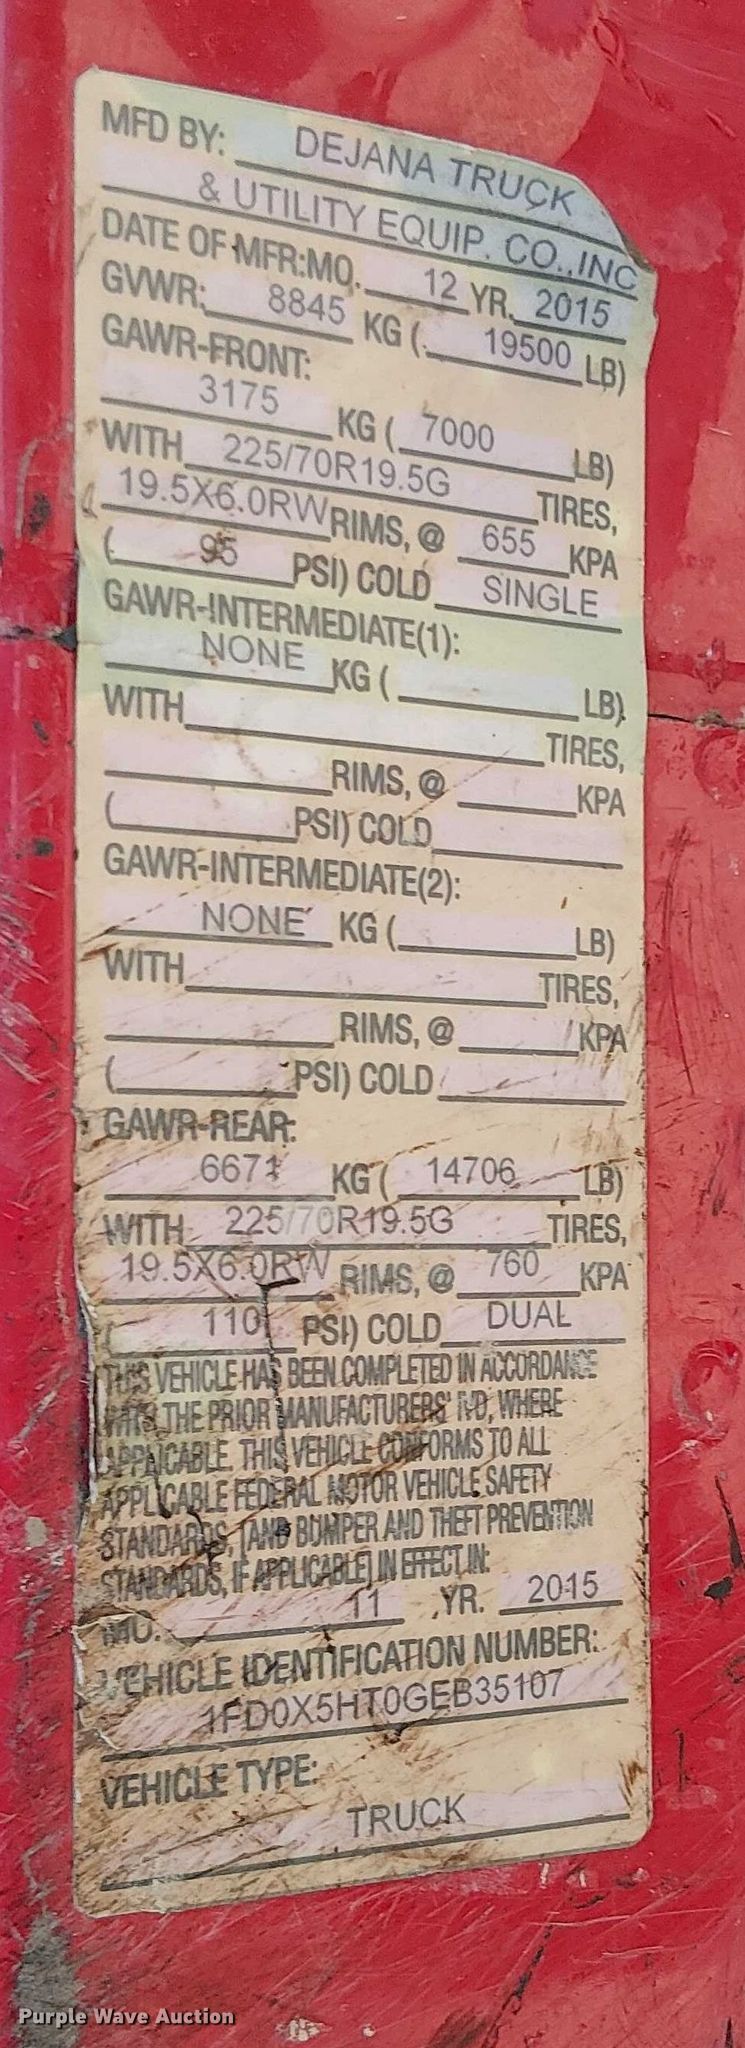 MFD BY: DEJANA TRUCK
& UTILITY EQUIP. CO.,INC
DATE OF MFR:MO. 12 YR. 2015
GVWR: 8845 KG ( 19500 LB)
GAWR-FRONT:
3175 KG ( 7000 LB)
WITH 225/70R19.5G TIRES,
19.5X6.0RW RIMS, @ 655 KPA
( 95 PSI) COLD SINGLE
GAWR-INTERMEDIATE(1):
NONE KG ( LB)
WITH TIRES,
RIMS, @ KPA
( PSI) COLD
GAWR-INTERMEDIATE(2):
NONE KG ( LB)
WITH TIRES,
RIMS, @ KPA
( PSI) COLD
GAWR-REAR:
6671 KG ( 14706 LB)
WITH 225/70R19.5G TIRES,
19.5X6.0RW RIMS, @ 760 KPA
( 110 PSI) COLD DUAL
THIS VEHICLE HAS BEEN COMPLETED IN ACCORDANCE
WITH THE PRIOR MANUFACTURERS' IVD, WHERE
APPLICABLE. THIS VEHICLE CONFORMS TO ALL
APPLICABLE FEDERAL MOTOR VEHICLE SAFETY
STANDARDS, [AND BUMPER AND THEFT PREVENTION
STANDARDS, IF APPLICABLE] IN EFFECT IN:
MO. 11 YR. 2015
VEHICLE IDENTIFICATION NUMBER:
1FD0X5HT0GEB35107
VEHICLE TYPE:
TRUCK
Purple Wave Auction